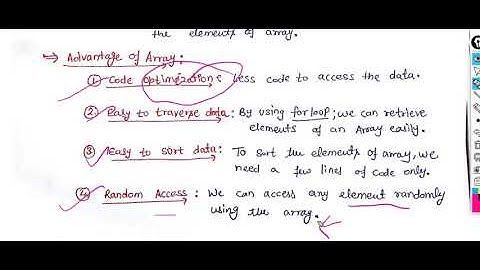 the elements of array.
→ Advantage of Array:
① Code Optimization: Less code to access the data.
② Easy to traverse data: By using for loop; we can retrieve
elements of an Array easily.
③ Easy to sort data: To sort the elements of array, we
need a few lines of code only.
④ Random Access: We can access any element randomly
using the array.